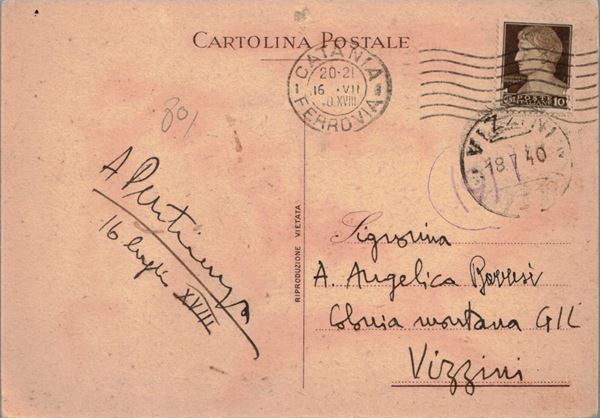 CARTOLINA POSTALE
CATANIA
20-21
16 · VII
XVIII
FERROVIA
POSTE
10
VIZZINI
18.7.40
80/
A
16 luglio XVIII
RIPRODUZIONE VIETATA
Signorina
A. Angelica
Colonia montana GIL
Vizzini